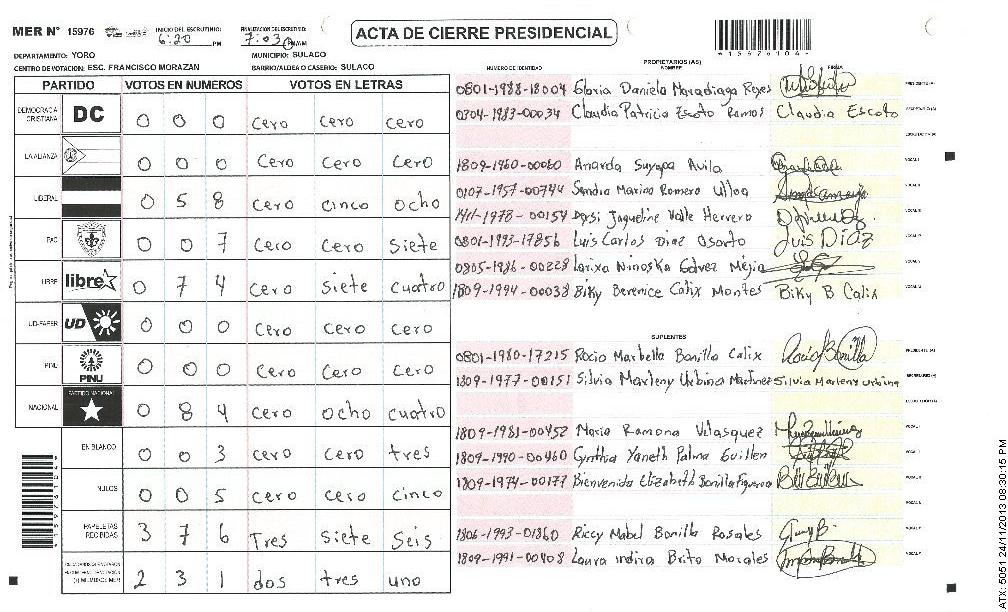 MER N° 15976
INICIO DEL ESCRUTINIO: 6:20 PM
FINALIZACION DEL ESCRUTINIO: 7:03 PM/AM
ACTA DE CIERRE PRESIDENCIAL
*15976104*
DEPARTAMENTO: YORO
MUNICIPIO: SULACO
CENTRO DE VOTACION: ESC. FRANCISCO MORAZAN
BARRIO/ALDEA O CASERIO: SULACO
PARTIDO VOTOS EN NUMEROS VOTOS EN LETRAS
DEMOCRACIA CRISTIANA DC 0 0 0 cero cero cero
LA ALIANZA 0 0 0 cero cero cero
LIBERAL 0 5 8 cero cinco ocho
PAC 0 0 7 cero cero siete
LIBRE libre 0 7 4 cero siete cuatro
UD-FAPER UD 0 0 0 cero cero cero
PINU PINU 0 0 0 cero cero cero
NACIONAL PARTIDO NACIONAL 0 8 4 cero ocho cuatro
EN BLANCO 0 0 3 cero cero tres
NULOS 0 0 5 cero cero cinco
PAPELETAS RECIBIDAS 3 7 6 Tres siete seis
2 3 1 dos tres uno
PROPIETARIOS (AS)
NUMERO DE IDENTIDAD NOMBRE FIRMA
0801-1988-18004 Gloria Daniela Maradiaga Reyes
0304-1983-00034 Claudia Patricia Escoto Ramos Claudia Escoto
1809-1960-00060 Amanda Suyapa Avila
0107-1957-00744 Sandra Marina Romero Ulloa
1411-1978-00154 Dorsi Jaqueline Valle Herrera
0801-1993-17856 Luis Carlos Diaz Osorto Luis Díaz
0805-1986-00228 Larixa Ninoska Galvez Mejia
1809-1994-00038 Biky Berenice Calix Montes Biky B Calix
SUPLENTES
0801-1980-17215 Rocio Marbella Bonilla Calix Rocio Bonilla
1809-1977-00151 Silvia Marleny Urbina Martinez Silvia Marleny urbina
1809-1981-00452 Maria Ramona Velasquez
1809-1990-00460 Cynthia Yaneth Palma Guillen
1809-1974-00177 Bienvenida Elizabeth Bonilla Figueroa
1806-1993-01860 Riccy Mabel Bonilla Rosales
1809-1991-00408 Laura indira Brito Morales
ATX: 5051 24/11/2013 08:30:15 PM